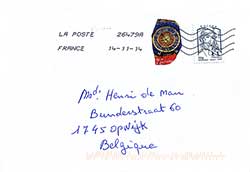 LA POSTE 26479A
FRANCE 14-11-14
Henri de Man
60
1745 Opwijk
Belgique